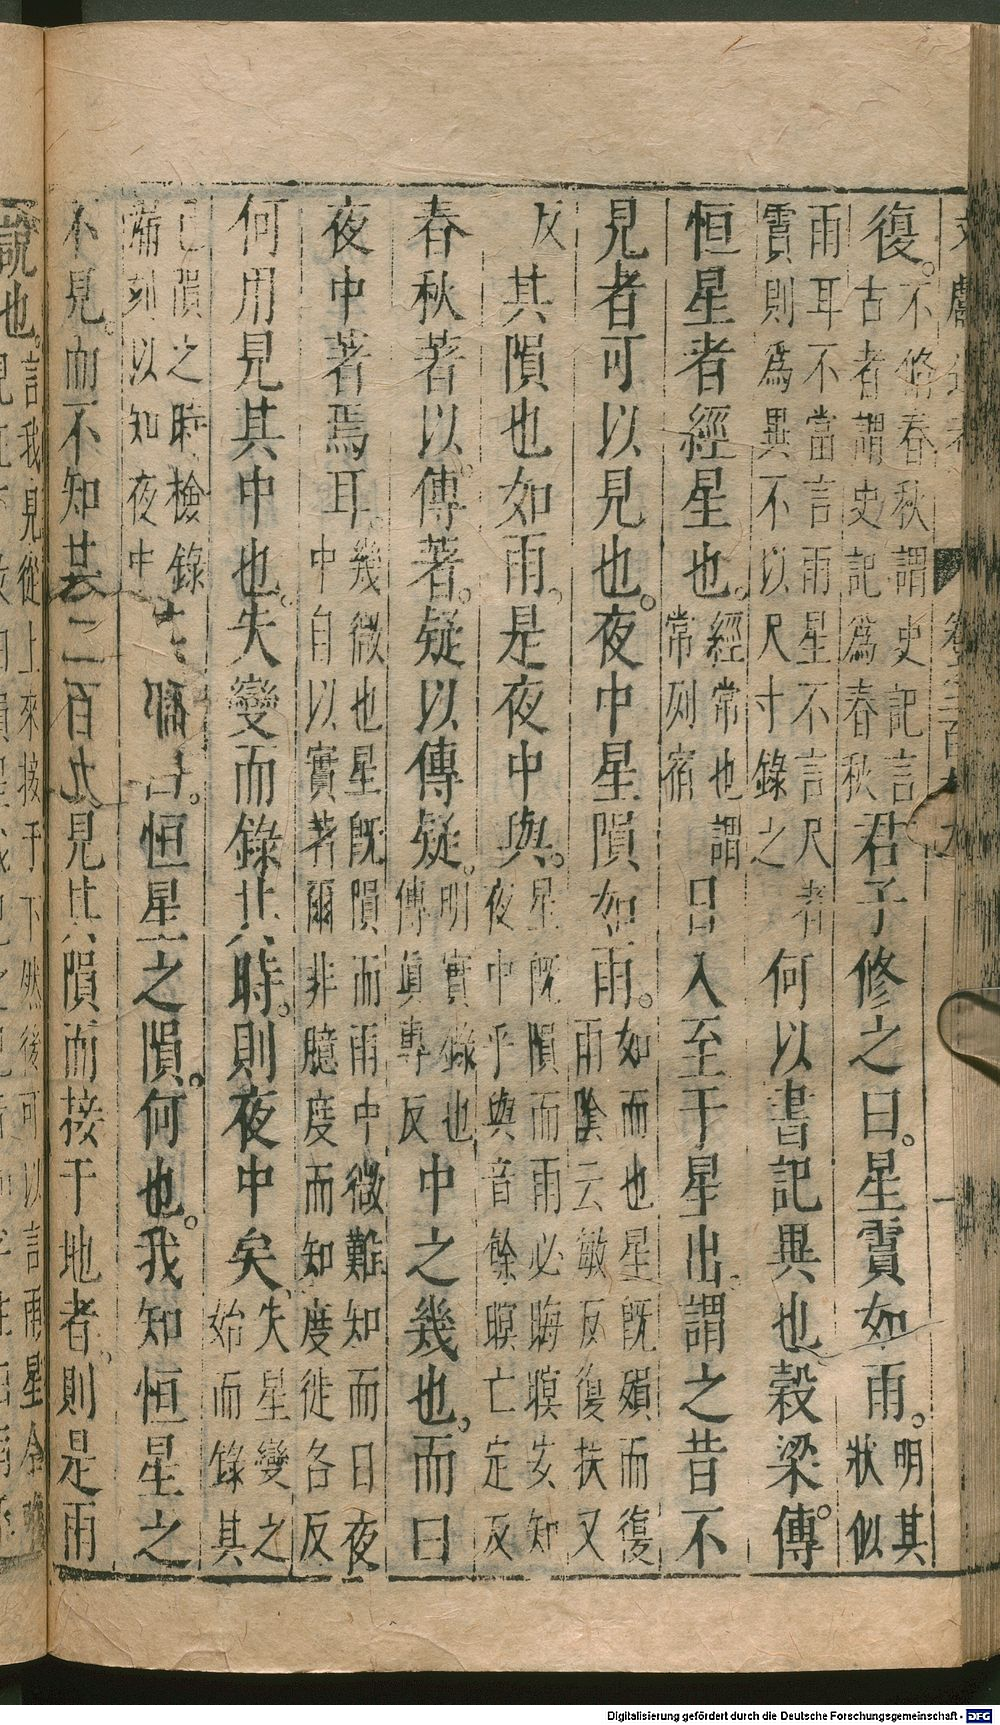 復。不脩春秋謂史記言古者謂史記爲春秋君子修之曰。星霣如雨。明其狀似
雨耳不當言雨星不言尺者霣則爲異不以尺寸錄之何以書記異也穀梁傳。
恒星者經星也。經常也謂常列宿日入至于星出。謂之昔不
見者可以見也。夜中星隕如雨。如而也星既殞而復雨陰云敏反復扶又
反其隕也如雨。是夜中與。星既隕而雨必晦暝安知夜中乎與音餘暝亡定反
春秋著以傳著。疑以傳疑。明實錄也傳眞專反中之幾也。而曰
夜中著焉耳。幾微也星既隕而雨中微難知而曰夜中自以實著爾非臆度而知度徙各反
何用見其中也。失變而錄其時。則夜中矣失星變之始而錄其
已隕之時檢錄漏刻以知夜中曰。恒星之隕。何也。我知恒星之
不見。而不知其二百九見其隕而接于地者。則是雨
說也。言我見從上來接于下然後可以言雨星今
Digitalisierung gefördert durch die Deutsche Forschungsgemeinschaft - DFG